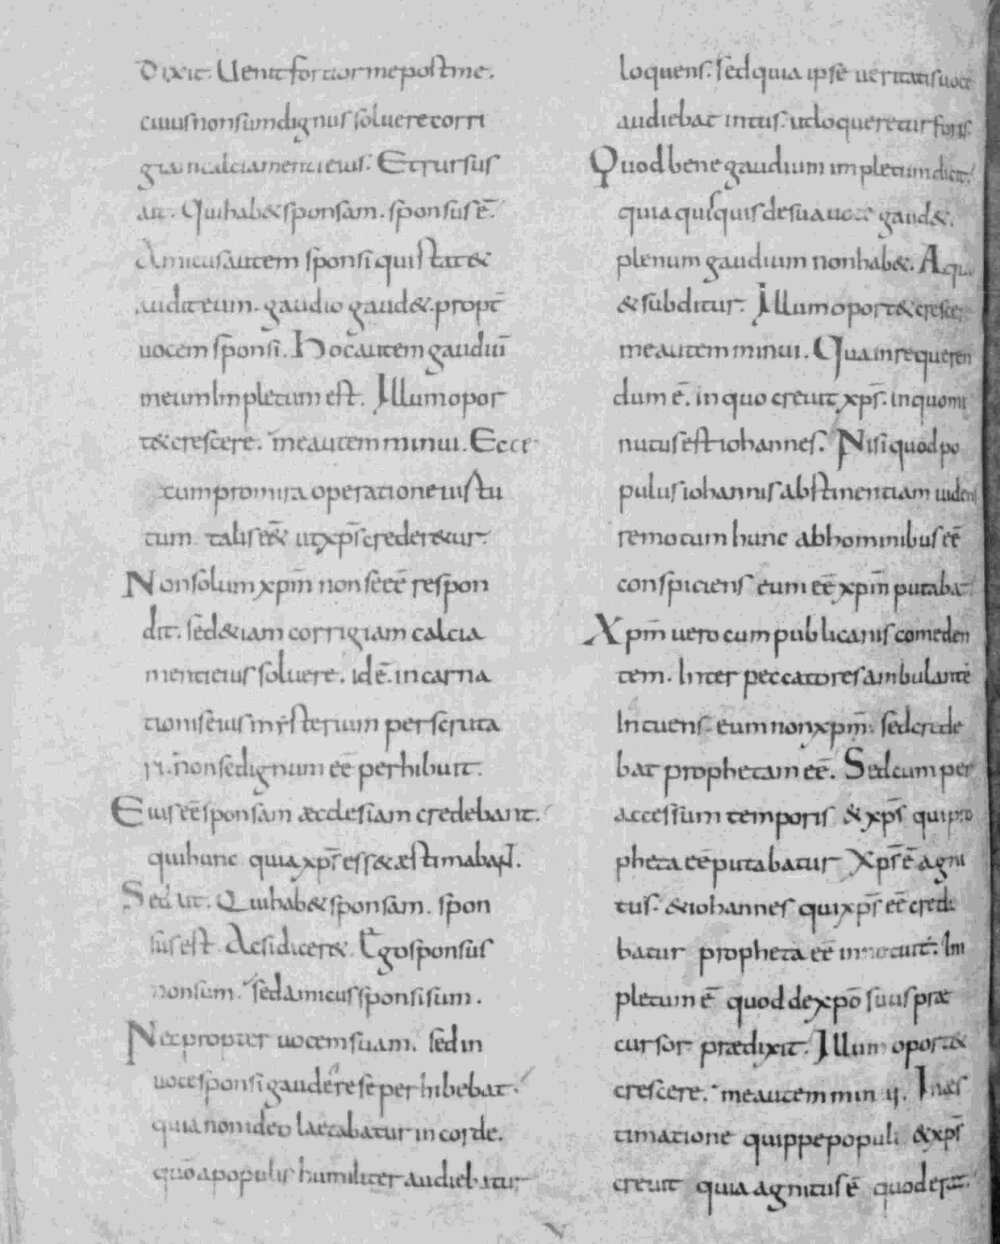 Dixit. Uenit fortior me post me.
cuius non sum dignus soluere corri
giam calciamenti eius. Et rursus
ait. Qui hab& sponsam. sponsus ē.
Amicus autem sponsi qui stat &
audit eum. gaudio gaud& propt̄
uocem sponsi. Hoc autem gaudiū
meum Impletum est. Illum opor
t& crescere. me autem minui. Ecce
cum pro mira operatione uistu
tum talis e&̄ ut xp̄s creder&ur
Non solum xp̄m non se eē respon
dit. sed &iam corrigiam calcia
menti eius soluere. id ē. incarna
tionis eius mẏsterium perscruta
ri. non se dignum eē perhibuit.
Eius eē sponsam æcclesiam credebant.
qui hunc quia xp̄s ess& æstimabant.
Sed ait. Qui hab& sponsam. spon
sus est. Ac si dicer&. Ego sponsus
non sum. sed amicus sponsi sum.
Nec propter uocem suam. sed in
uoce sponsi gaudere se perhibebat.
quia non ideo laetabatur in corde.
quō a populis humiliter audiebatur
loquens. sed quia ipse ueritatis uoce
audiebat intus. ut loqueretur foris.
Quod bene gaudium impletum dicit.
quia quisquis de sua uoce gaud&.
plenum gaudium non hab&. A quo
& subditur. Illum oport& crescere
me autem minui. Qua in re queren
dum ē. in quo creuit xp̄s. in quo mi
nutus est iohannes. Nisi quod po
pulus iohannis abstinentiam uidens
remotum hunc ab hominibus eē
conspiciens eum eē xp̄m putabat
Xp̄m uero cum publicanis comeden
tem. Inter peccatores ambulantē
Intuens. eum non xp̄m. sed crede
bat prophetam eē. Sed cum per
accessum temporis & xp̄s qui pro
pheta eē putabatur Xp̄s ē agni
tus. & iohannes qui xp̄s eē crede
batur propheta eē innotuit. Im
pletum ē quod de xp̄o suus præ
cursor prædixit. Illum oport&
crescere. me autem minui. In æs
timatione quippe populi & xp̄s
creuit quia agnitus ē quod erat.